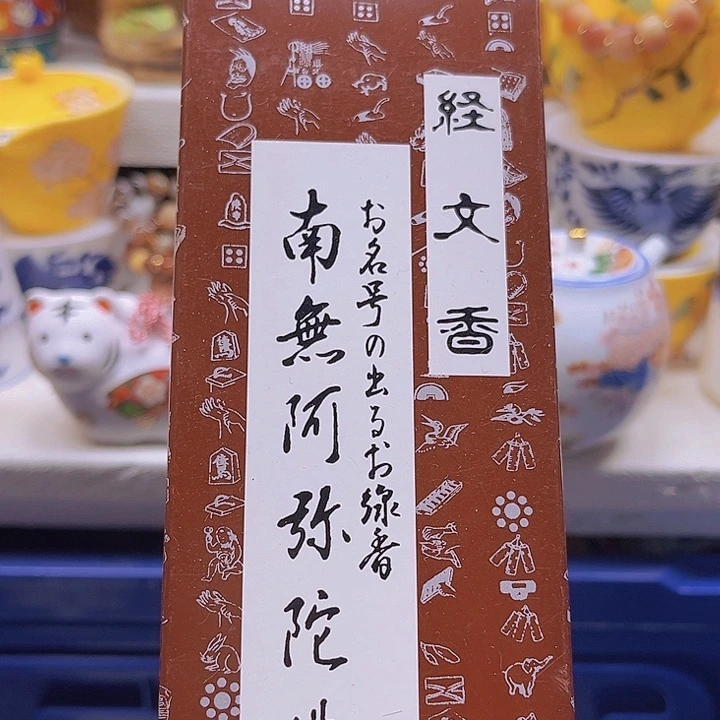 経文香
お名号の出るお線香
南無阿弥陀